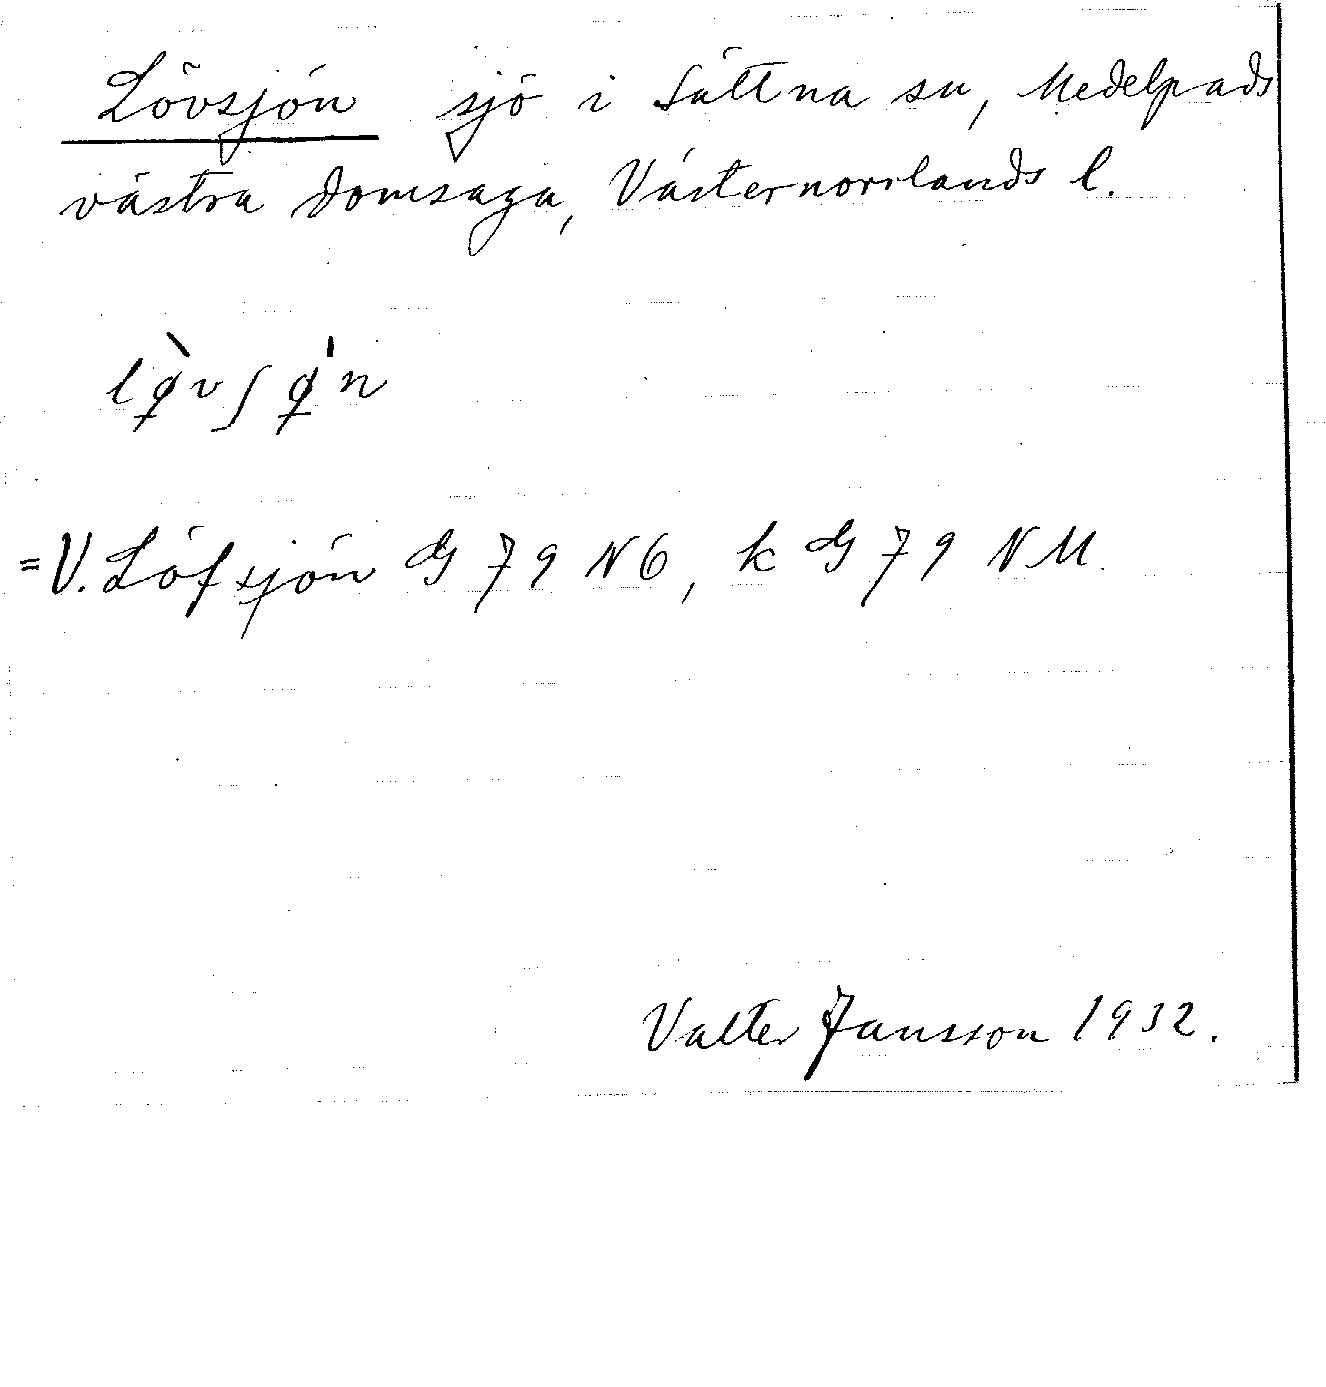 Lövsjön sjö i Sättna sn, Medelpads
västra domsaga, Västernorrlands l.
lø̀vʃø̍n
=V. Löfsjön G 79 N6, k G 79 NM.
Valter Jansson 1932.